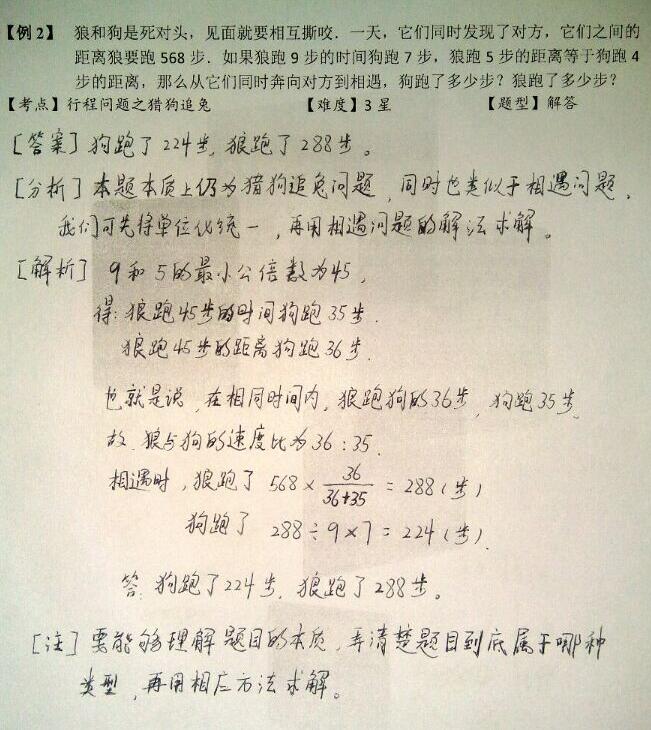 【例2】 狼和狗是死对头，见面就要相互撕咬．一天，它们同时发现了对方，它们之间的
距离狼要跑 568 步．如果狼跑 9 步的时间狗跑 7 步，狼跑 5 步的距离等于狗跑 4
步的距离，那么从它们同时奔向对方到相遇，狗跑了多少步？狼跑了多少步？
【考点】行程问题之猎狗追兔 【难度】3 星 【题型】解答
[答案] 狗跑了 224步, 狼跑了 288步。
[分析] 本题本质上仍为猎狗追兔问题，同时也类似于相遇问题．
我们可先将单位化统一，再用相遇问题的解法求解。
[解析] 9和5的最小公倍数为45，
得: 狼跑45步的时间狗跑35步．
狼跑45步的距离狗跑36步．
也就是说，在相同时间内，狼跑狗的36步，狗跑35步．
故．狼与狗的速度比为36：35．
相遇时，狼跑了 568 × 36/(36+35) = 288（步）
狗跑了 288÷9×7=224（步）．
答: 狗跑了224步，狼跑了288步。
[注] 要能够理解题目的本质，弄清楚题目到底属于哪种
类型，再用相应方法求解。